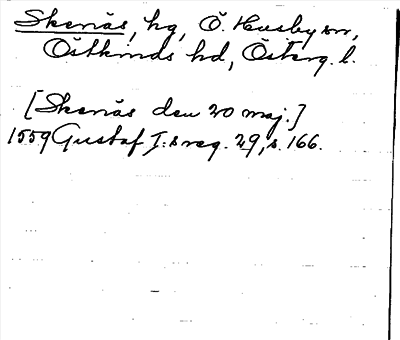 Skenäs, hg, Ö. Husby sn,
Östkinds hd, Österg. l.
[Skenäs den 20 maj.]
1559 Gustaf I:s reg. 29, s. 166.